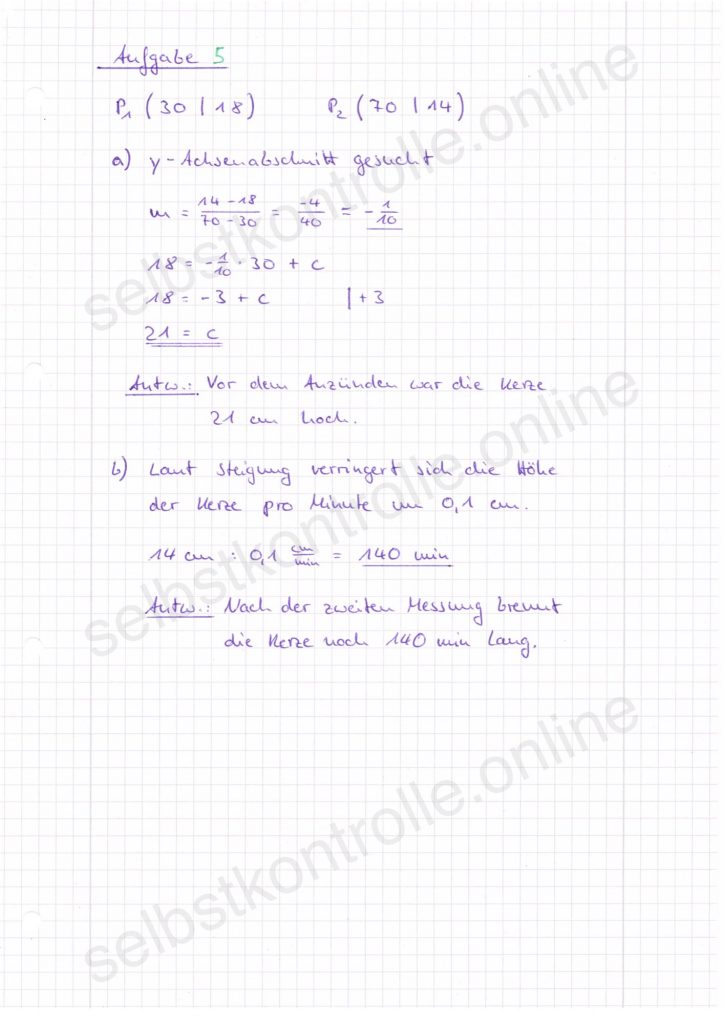 Aufgabe 5
P₁ (30 | 18) P₂ (70 | 14)
a) y-Achsenabschnitt gesucht
m = \frac{14-18}{70-30} = \frac{-4}{40} = -\frac{1}{10}
18 = -\frac{1}{10} · 30 + c
18 = -3 + c | +3
21 = c
Antw.: Vor dem Anzünden war die Kerze
21 cm hoch.
b) Laut Steigung verringert sich die Höhe
der Kerze pro Minute um 0,1 cm.
14 cm : 0,1 \frac{cm}{min} = 140 min
Antw.: Nach der zweiten Messung brennt
die Kerze noch 140 min lang.
selbstkontrolle.online
selbstkontrolle.online
selbstkontrolle.online